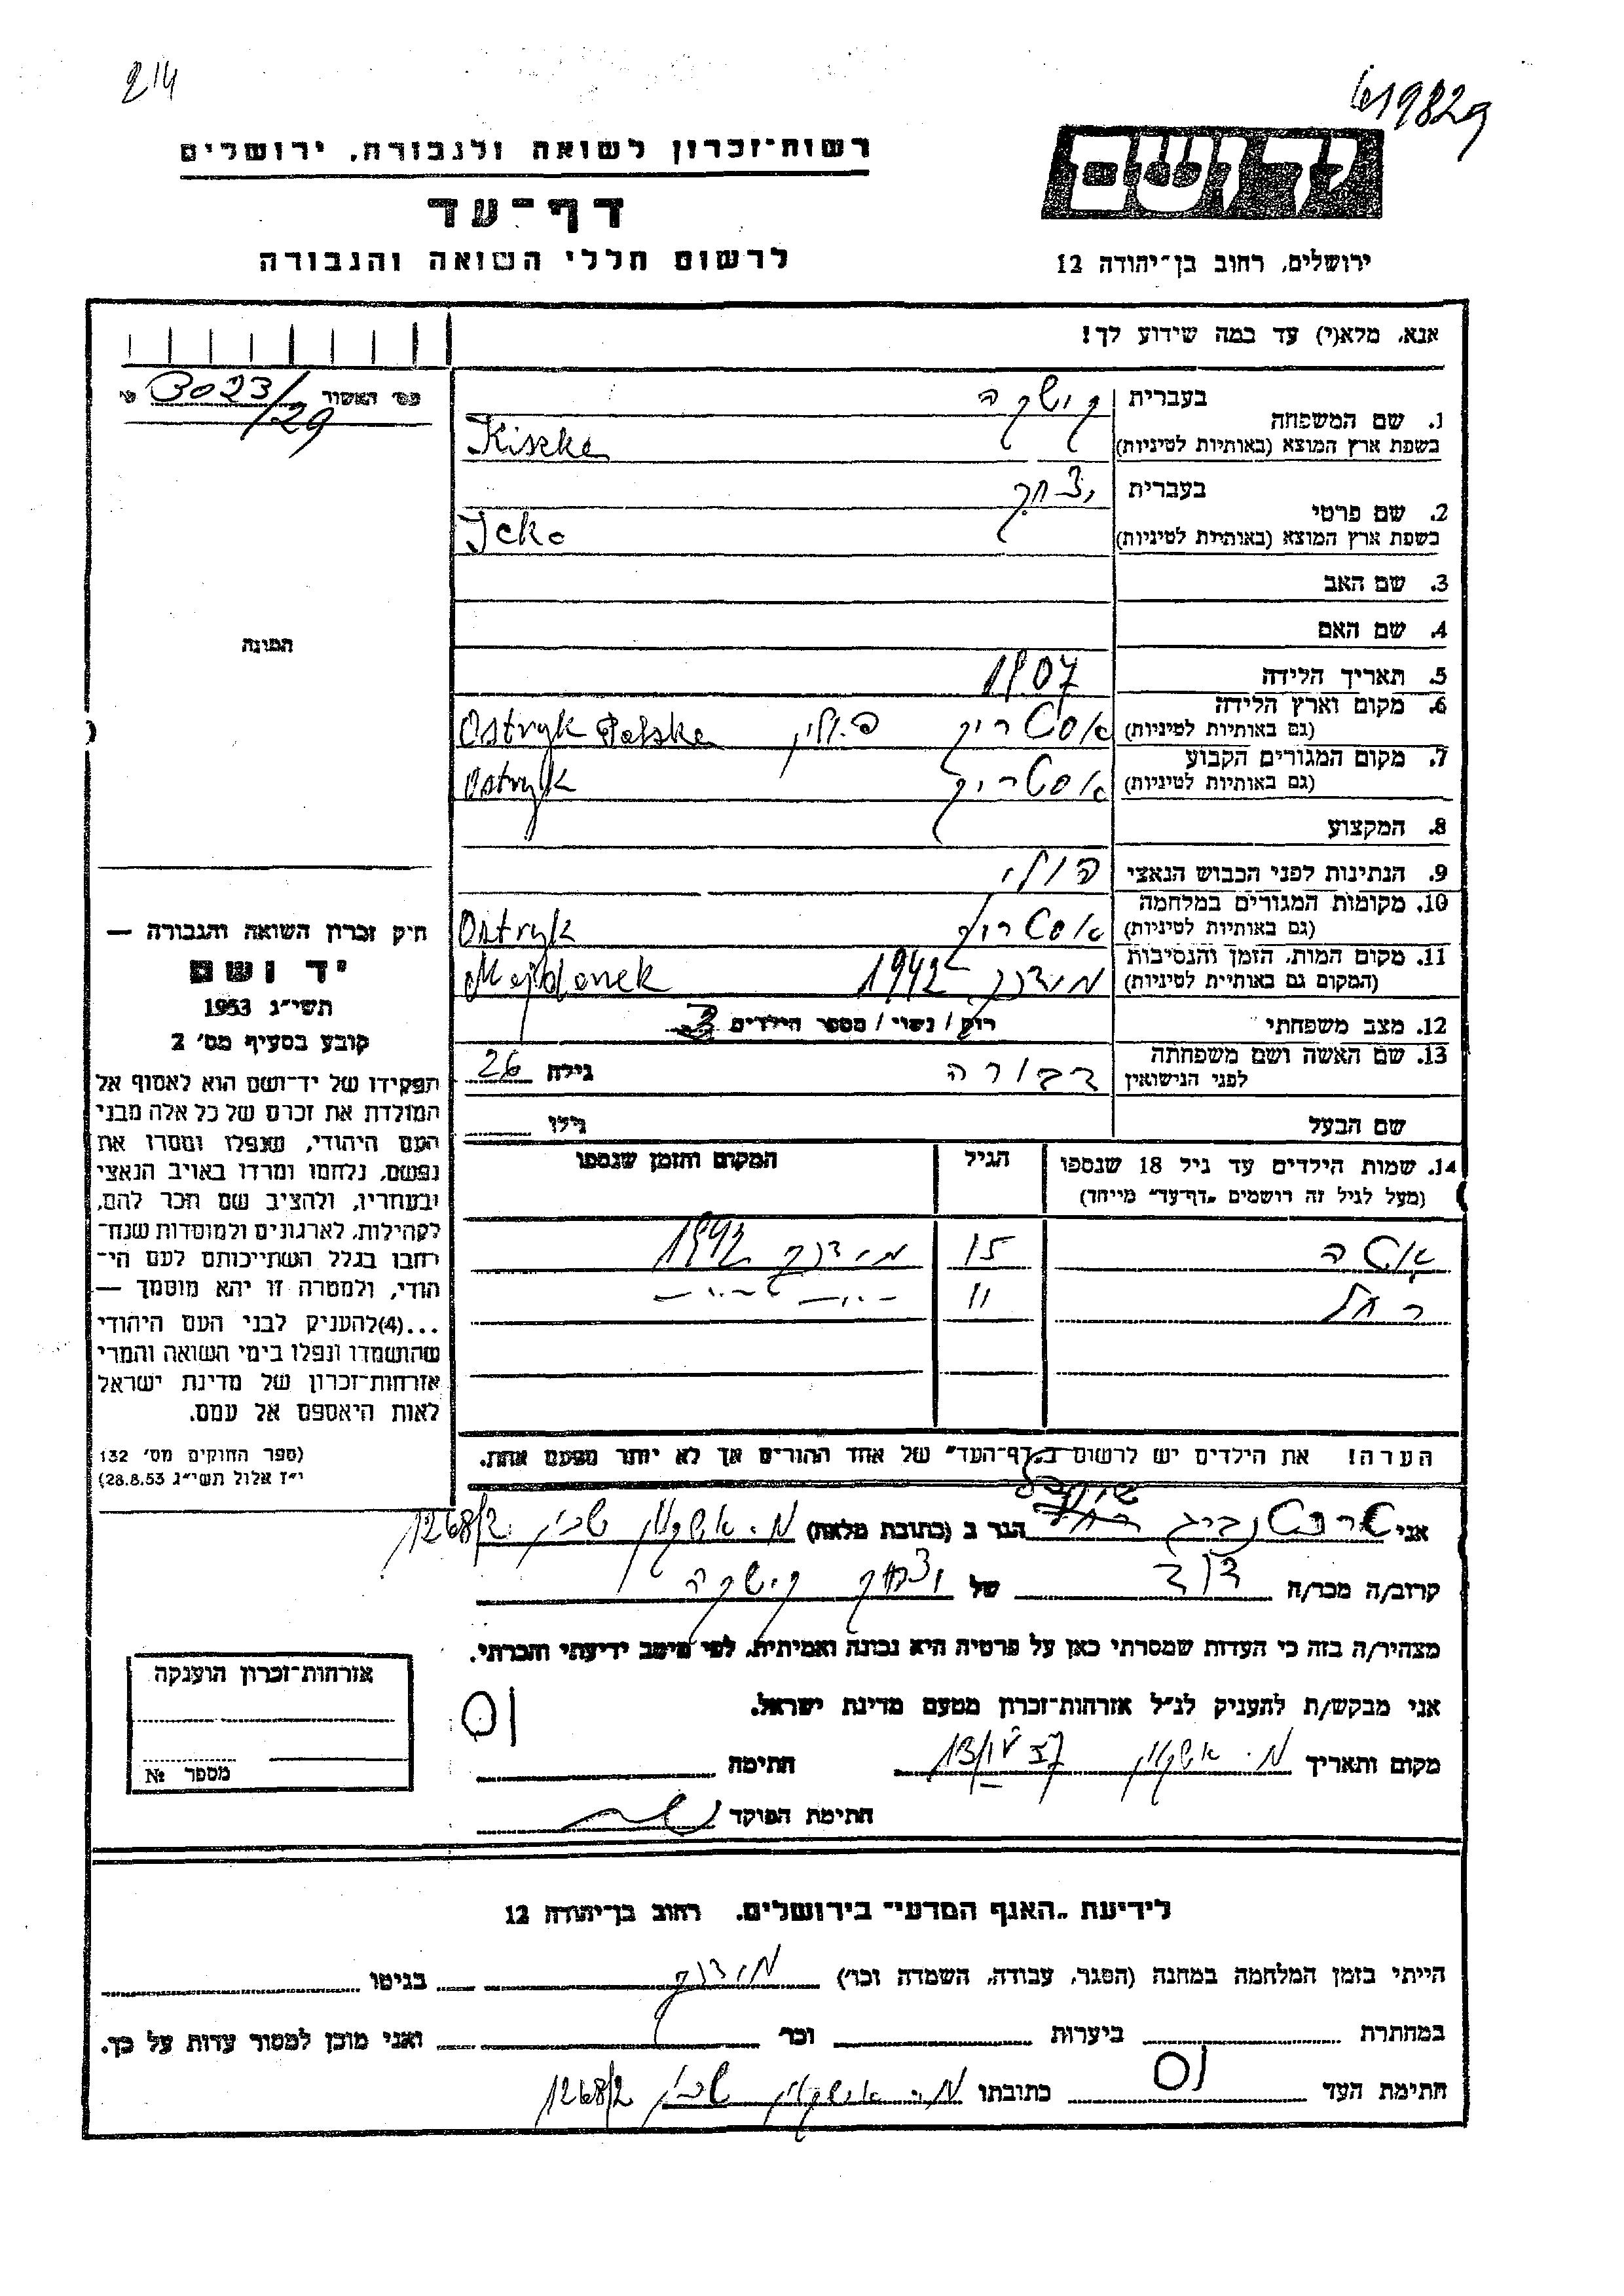 214
619829
רשות־זכרון לשואה ולגבורה, ירושלים
דף־עד
לרשום חללי השואה והגבורה
יד ושם
ירושלים, רחוב בן־יהודה 12
אנא, מלא(י) עד כמה שידוע לך!
מס' האשור 3023/29
1. שם המשפחה
בעברית קישקה
בשפת ארץ המוצא (באותיות לטיניות) Kiszka
2. שם פרטי
בעברית יצחק
בשפת ארץ המוצא (באותיות לטיניות) Icko
3. שם האב
4. שם האם
5. תאריך הלידה 1907
6. מקום וארץ הלידה (גם באותיות לטיניות) אוסטריק פולין Ostryk Polska
7. מקום המגורים הקבוע (גם באותיות לטיניות) אוסטריק Ostryk
8. המקצוע
9. הנתינות לפני הכבוש הנאצי פולני
10. מקומות המגורים במלחמה (גם באותיות לטיניות) אוסטריק Ostryk
11. מקום המות, הזמן והנסיבות (המקום גם באותיות לטיניות) מידנק 1942 Majdanek
12. מצב משפחתי רווק / נשוי / מספר הילדים
13. שם האשה ושם משפחתה לפני הנישואין דבורה גילה 26
שם הבעל גילו
14. שמות הילדים עד גיל 18 שנספו הגיל המקום והזמן שנספו
(מעל לגיל זה רושמים "דף־עד" מיוחד)
15 מידנק 1942
רחל 11
הערה! את הילדים יש לרשום ב"דף־העד" של אחד ההורים אך לא יותר מפעם אחת.
התמונה
חוק זכרון השואה והגבורה —
יד ושם
תשי"ג 1953
קובע בסעיף מס' 2
תפקידו של יד־ושם הוא לאסוף אל
המולדת את זכרם של כל אלה מבני
העם היהודי, שנפלו ומסרו את
נפשם, נלחמו ומרדו באויב הנאצי
ובעוזריו, ולהציב שם וזכר להם,
לקהילות, לארגונים ולמוסדות שנח־
רבו בגלל השתייכותם לעם הי־
הודי, ולמטרה זו יהא מוסמך —
...(4) להעניק לבני העם היהודי
שהושמדו ונפלו בימי השואה והמרי
אזרחות־זכרון של מדינת ישראל
לאות היאספם אל עמם.
(ספר החוקים מס' 132
י"ז אלול תשי"ג 28.8.53)
אני הגר ב (כתובת מלאה) מ. אשקלון שכון 1268/2
קרוב/ה מכר/ה דוד של יצחק קישקה
מצהיר/ה בזה כי העדות שמסרתי כאן על פרטיה היא נכונה ואמיתית, לפי מיטב ידיעתי והכרתי.
אני מבקש/ת להעניק לנ"ל אזרחות־זכרון מטעם מדינת ישראל.
מקום ותאריך מ. אשקלון חתימה
חתימת הפוקד
אזרחות־זכרון הוענקה
מספר №
לידיעת "האגף המדעי" בירושלים, רחוב בן־יהודה 12
הייתי בזמן המלחמה במחנה (הסגר, עבודה, השמדה וכו') מידנק בגיטו
במחתרת ביערות וכו' ואני מוכן למסור עדות על כך.
חתימת העד כתובתו מ. אשקלון שכון 1268/2